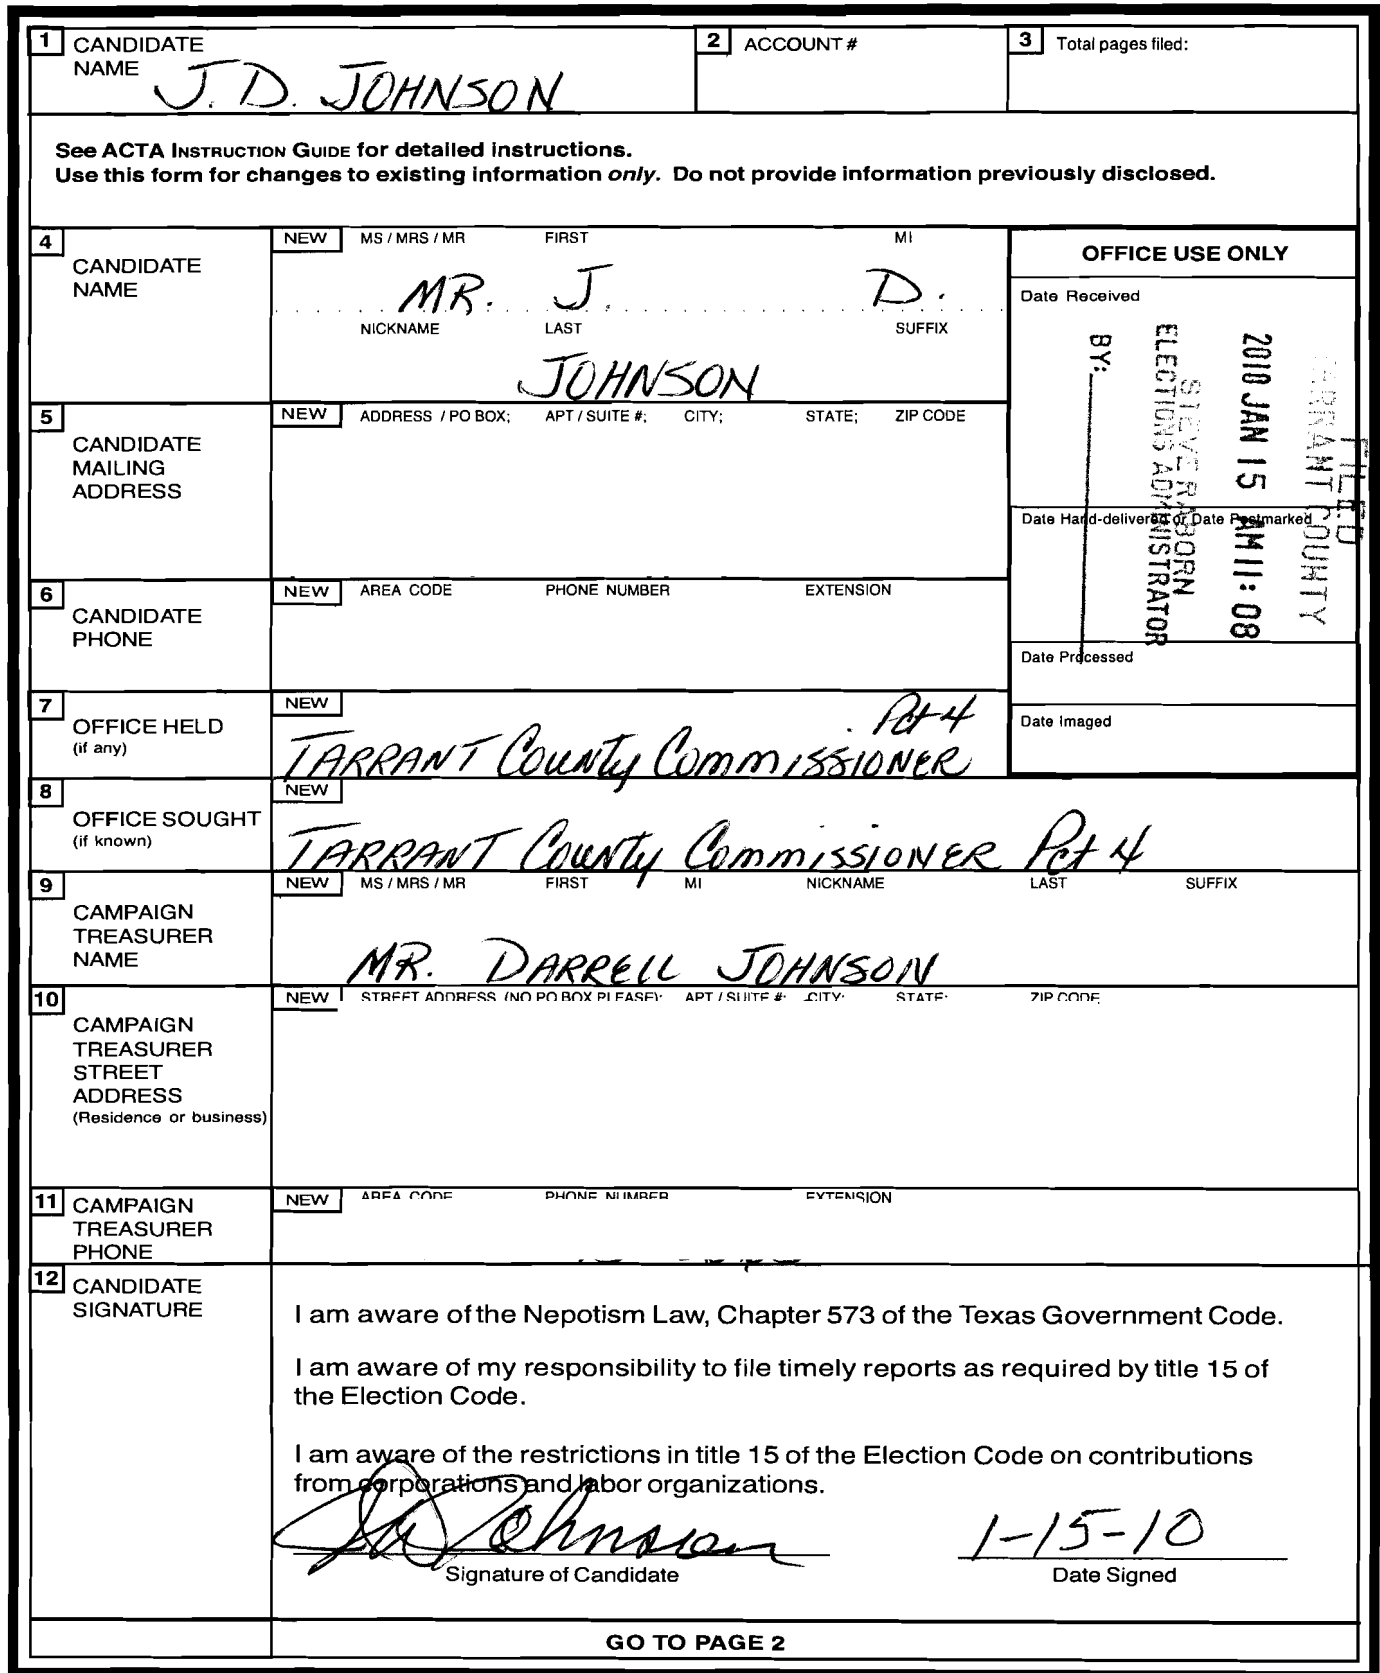 1 CANDIDATE NAME J. D. JOHNSON
2 ACCOUNT #
3 Total pages filed:
See ACTA INSTRUCTION GUIDE for detailed instructions.
Use this form for changes to existing information only. Do not provide information previously disclosed.
4 CANDIDATE NAME
NEW MS / MRS / MR FIRST MI
MR. J. D.
NICKNAME LAST SUFFIX
JOHNSON
OFFICE USE ONLY
Date Received
FILED
TARRANT COUNTY
2010 JAN 15 AM 11: 08
STEVE RABORN
ELECTIONS ADMINISTRATOR
BY:
Date Hand-delivered or Date Postmarked
Date Processed
Date Imaged
5 CANDIDATE MAILING ADDRESS
NEW ADDRESS / PO BOX; APT / SUITE #; CITY; STATE; ZIP CODE
6 CANDIDATE PHONE
NEW AREA CODE PHONE NUMBER EXTENSION
7 OFFICE HELD
(if any)
NEW
Pct 4
TARRANT COUNTY COMMISSIONER
8 OFFICE SOUGHT
(if known)
NEW
TARRANT COUNTY COMMISSIONER Pct 4
9 CAMPAIGN TREASURER NAME
NEW MS / MRS / MR FIRST MI NICKNAME LAST SUFFIX
MR. DARRELL JOHNSON
10 CAMPAIGN TREASURER STREET ADDRESS
(Residence or business)
NEW STREET ADDRESS (NO PO BOX PLEASE); APT / SUITE #; CITY; STATE; ZIP CODE
11 CAMPAIGN TREASURER PHONE
NEW AREA CODE PHONE NUMBER EXTENSION
12 CANDIDATE SIGNATURE
I am aware of the Nepotism Law, Chapter 573 of the Texas Government Code.
I am aware of my responsibility to file timely reports as required by title 15 of
the Election Code.
I am aware of the restrictions in title 15 of the Election Code on contributions
from corporations and labor organizations.
JD Johnson 1-15-10
Signature of Candidate Date Signed
GO TO PAGE 2